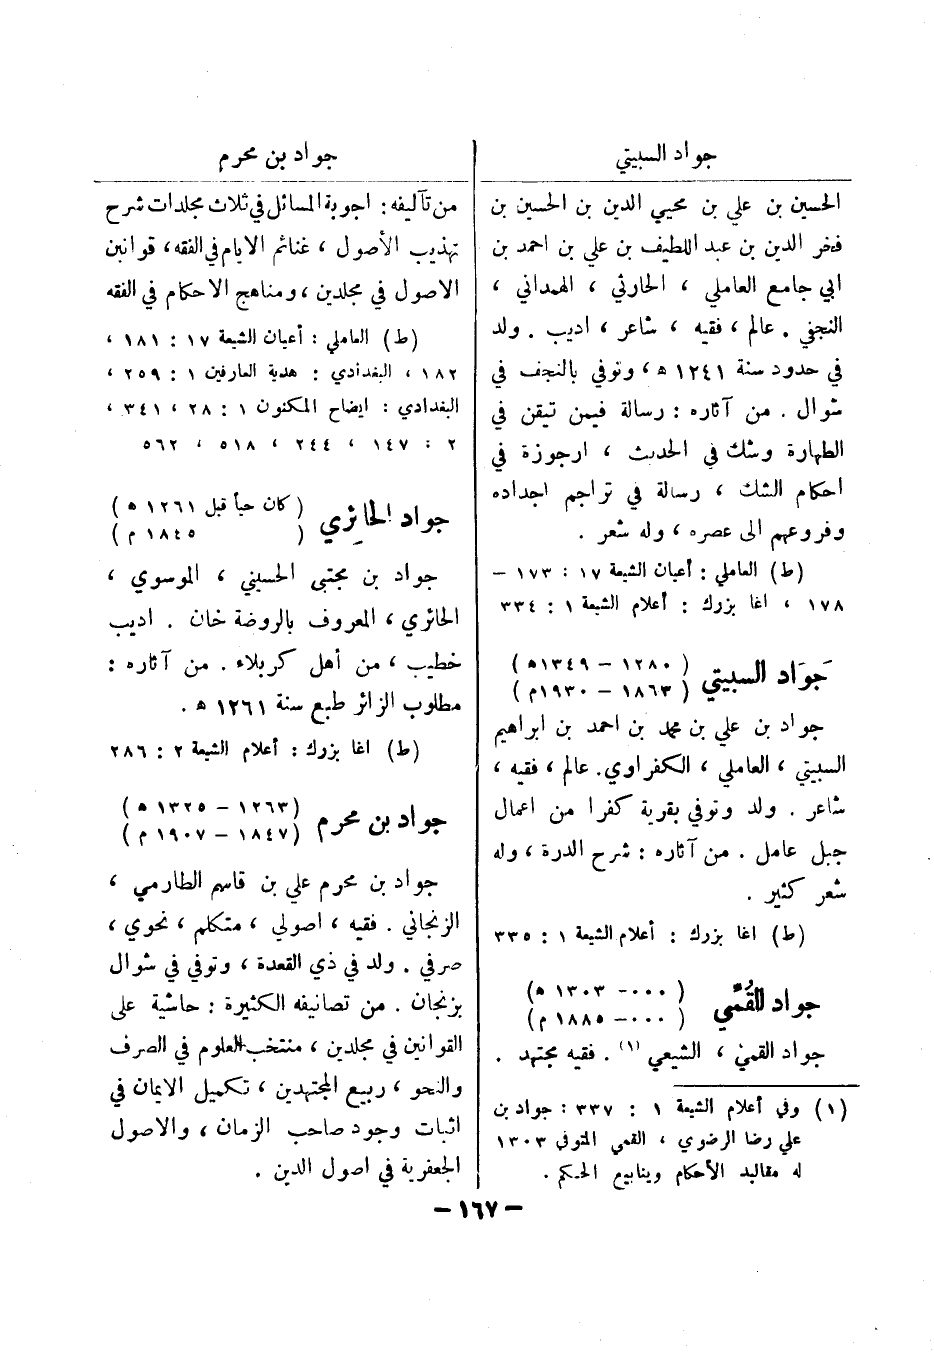 جواد السبيتي
الحسين بن علي بن محيي الدين بن الحسين بن
فخر الدين بن عبد اللطيف بن علي بن احمد بن
ابي جامع العاملي ، الحارثي ، الهمداني ،
النجفي . عالم ، فقيه ، شاعر ، اديب . ولد
في حدود سنة ١٢٤١ ه ، وتوفي بالنجف في
شوال . من آثاره : رسالة فيمن تيقن في
الطهارة وشك في الحديث ، ارجوزة في
احكام الشك ، رسالة في تراجم اجداده
وفروعهم الى عصره ، وله شعر .
(ط) العاملي : أعيان الشيعة ١٧ : ١٧٣ –
١٧٨ ، اغا بزرك : أعلام الشيعة ١ : ٣٣٤
جَوَاد السبيتي
( ١٢٨٠ – ١٣٤٩ه )
( ١٨٦٣ – ١٩٣٠م )
جواد بن علي بن محمد بن احمد بن ابراهيم
السبيتي ، العاملي ، الكفراوي. عالم ، فقيه ،
شاعر . ولد وتوفي بقرية كفرا من اعمال
جبل عامل . من آثاره : شرح الدرة ، وله
شعر كثير .
(ط) اغا بزرك : أعلام الشيعة ١ : ٣٣٥
جواد القُمّي
( ٠٠٠ – ١٣٠٣ ه )
( ٠٠٠ – ١٨٨٥ م )
جواد القمي ، الشيعي (١) . فقيه مجتهد .
(١) وفي أعلام الشيعة ١ : ٣٣٧ : جواد بن
علي رضا الرضوي ، القمي المتوفى ١٣٠٣
له مقاليد الأحكام وينابيع الحكم .
جواد بن محرم
من تآليفه : اجوبة المسائل في ثلاث مجلدات شرح
تهذيب الأصول ، غنائم الايام في الفقه ، قوانين
الاصول في مجلدين ، ومناهج الاحكام في الفقه
(ط) العاملي : أعيان الشيعة ١٧ : ١٨١ ،
١٨٢ ، البغدادي : هدية العارفين ١ : ٢٥٩ ،
البغدادي : ايضاح المكنون ١ : ٢٨ ، ٣٤١ ،
٢ : ١٤٧ ، ٢٤٤ ، ٥١٨ ، ٥٦٢
جواد الحائري
( كان حياً قبل ١٢٦١ ه )
( ١٨٤٥ م )
جواد بن مجتبى الحسيني ، الموسوي ،
الحائري ، المعروف بالروضة خان . اديب
خطيب ، من أهل كربلاء . من آثاره :
مطلوب الزائر طبع سنة ١٢٦١ ه .
(ط) اغا بزرك : أعلام الشيعة ٢ : ٢٨٦
جواد بن محرم
(١٢٦٣ – ١٣٢٥ ه )
(١٨٤٧ – ١٩٠٧ م )
جواد بن محرم علي بن قاسم الطارمي ،
الزنجاني . فقيه ، اصولي ، متكلم ، نحوي ،
صرفي . ولد في ذي القعدة ، وتوفي في شوال
بزنجان . من تصانيفه الكثيرة : حاشية على
القوانين في مجلدين ، منتخب العلوم في الصرف
والنحو ، ربيع المجتهدين ، تكميل الايمان في
اثبات وجود صاحب الزمان ، والاصول
الجعفرية في اصول الدين .
– ١٦٧ –